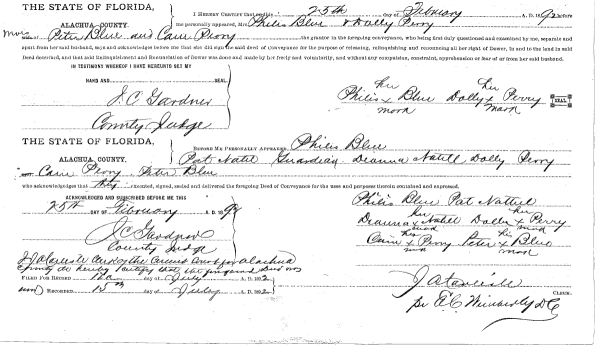 THE STATE OF FLORIDA,
ALACHUA COUNTY.
I HEREBY CERTIFY that on this 25th day of February A. D. 1892 before
me personally appeared, Mrs. Philis Blue & Dolly Perry
wives of Peter Blue and Cain Perry the grantor in the foregoing conveyance, who being first duly questioned and examined by me, separate and
apart from her said husband, says and acknowledges before me that she did sign the said deed of Conveyance for the purpose of releasing, relinquishing and renouncing all her right of Dower, in and to the land in said
Deed described, and that said Relinquishment and Renunciation of Dower was done and made by her freely and voluntarily, and without any compulsion, constraint, apprehension or fear of or from her said husband.
IN TESTIMONY WHEREOF I HAVE HEREUNTO SET MY
HAND AND SEAL.
J. C. Gardner
County Judge
her her
Philis x Blue Dolly x Perry SEAL
mark mark
THE STATE OF FLORIDA,
ALACHUA COUNTY.
BEFORE ME PERSONALLY APPEARED Philis Blue
Pat Nattiel Guardian Deanna Natiell Dolly Perry
Cain Perry Peter Blue
who acknowledges that they executed, signed, sealed and delivered the foregoing Deed of Conveyance for the uses and purposes therein contained and expressed.
ACKNOWLEDGED AND SUBSCRIBED BEFORE ME THIS
25th DAY OF February A. D. 1892
J C Gardner
County Judge
Philis Blue Pat Nattiel
her her
Deanna x Natiell Dolly x Perry
mark mark
his his
Cain x Perry Peter x Blue
mark mark
Clerk of the Circuit Court for Alachua
County do hereby certify that the foregoing deed was
FILED FOR RECORD day of July A. D. 1892
and RECORDED 15th day of July A. D. 1892
J A Carlisle CLERK.
pr E. C. Wimberly D C